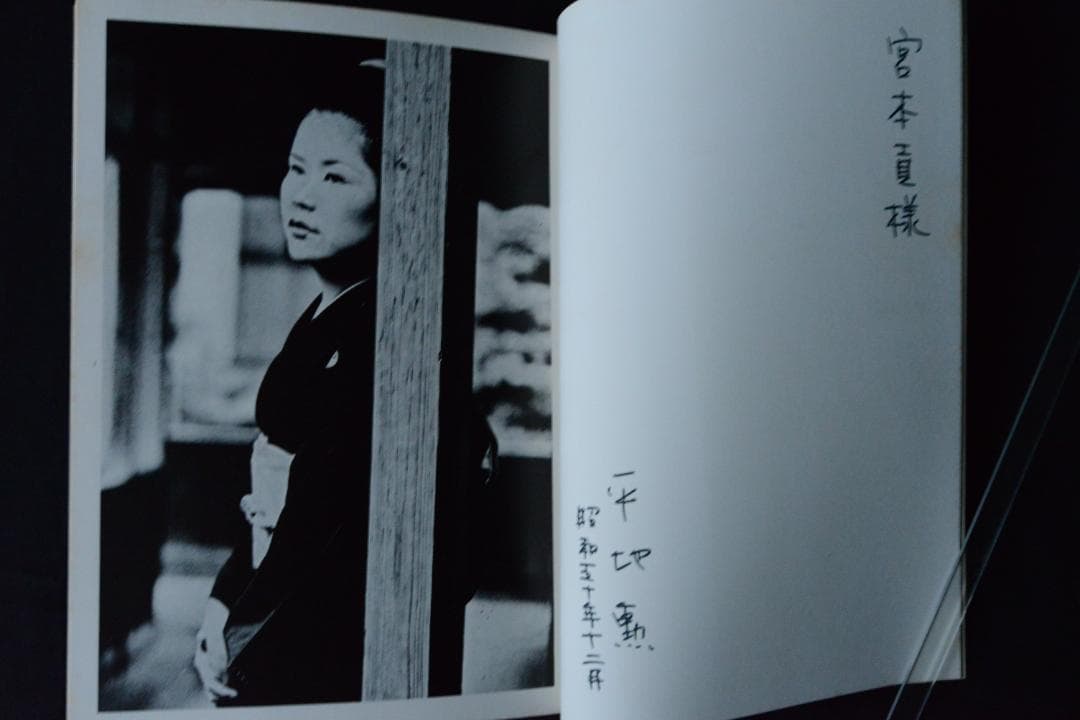 宮本貢様
平地勲
昭和五十年十二月